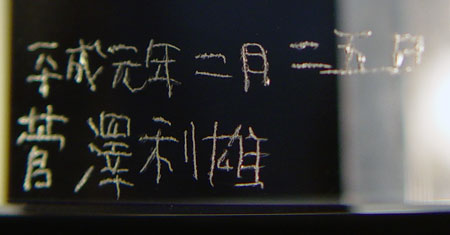 平成元年二月二五日
菅澤利雄